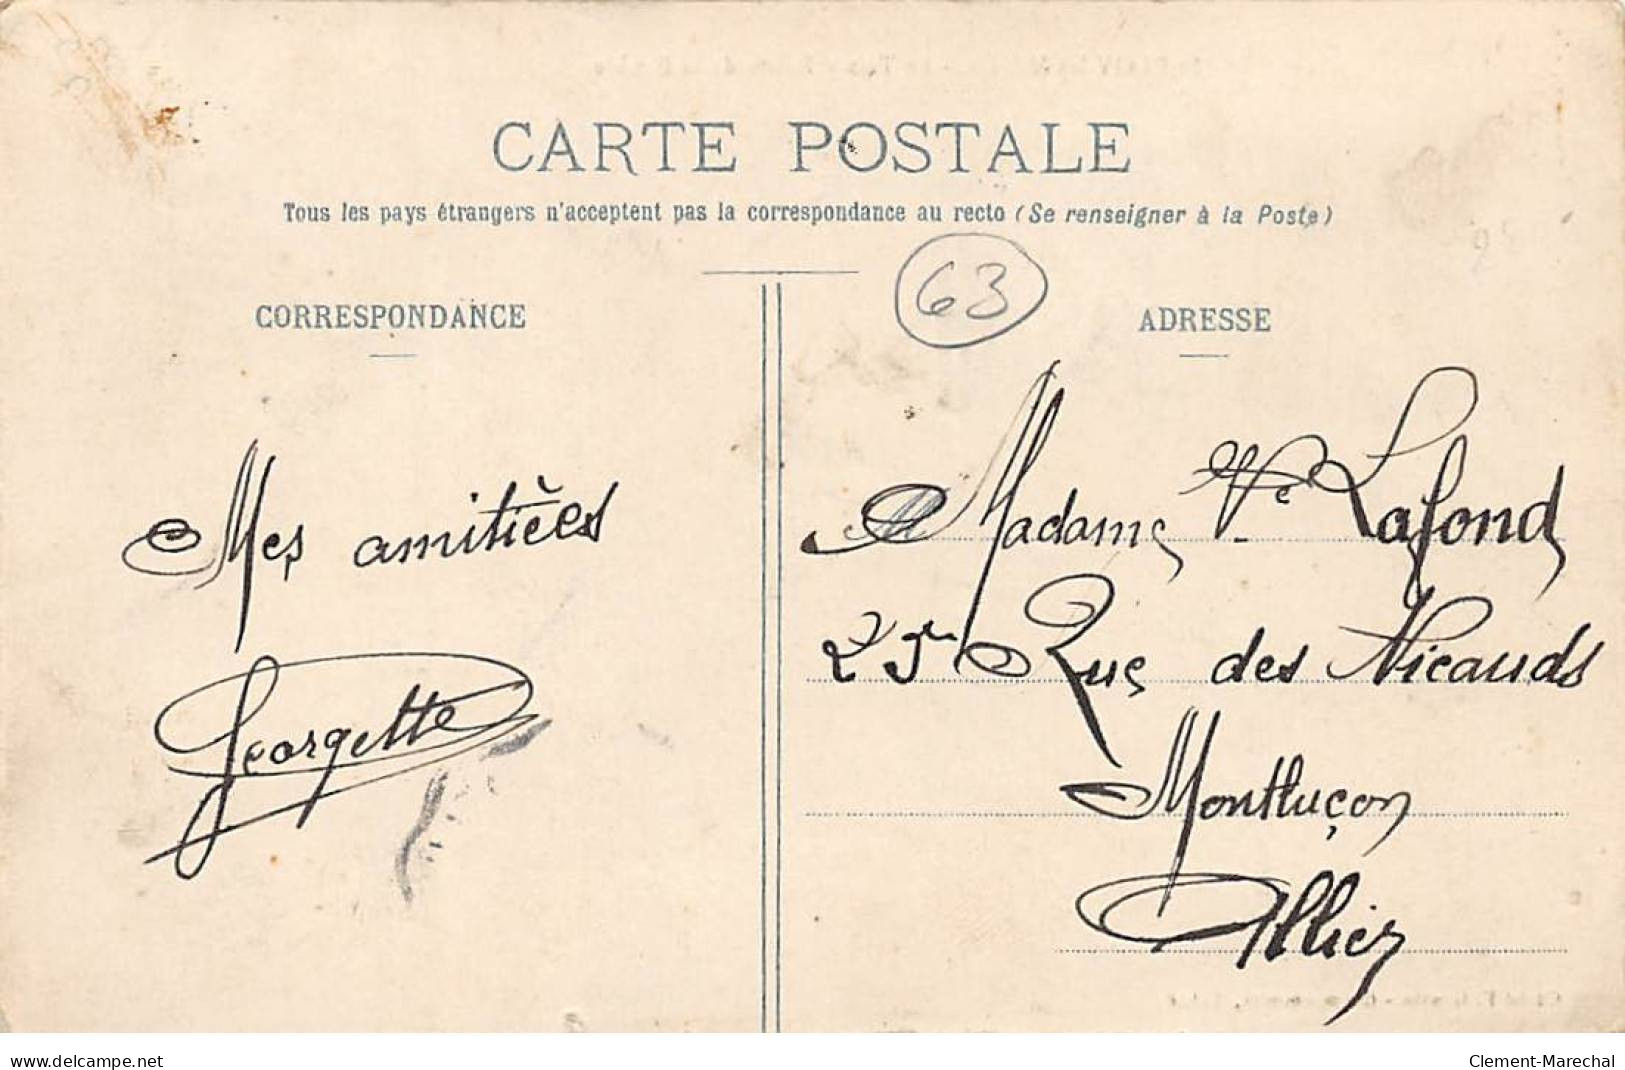 CARTE POSTALE
Tous les pays étrangers n'acceptent pas la correspondance au recto (Se renseigner à la Poste)
63
CORRESPONDANCE
Mes amitièes
Georgette
ADRESSE
Madame Vve Lafond
25 Rue des Nicauds
Montluçon
Allier
www.delcampe.net
Clement-Marechal